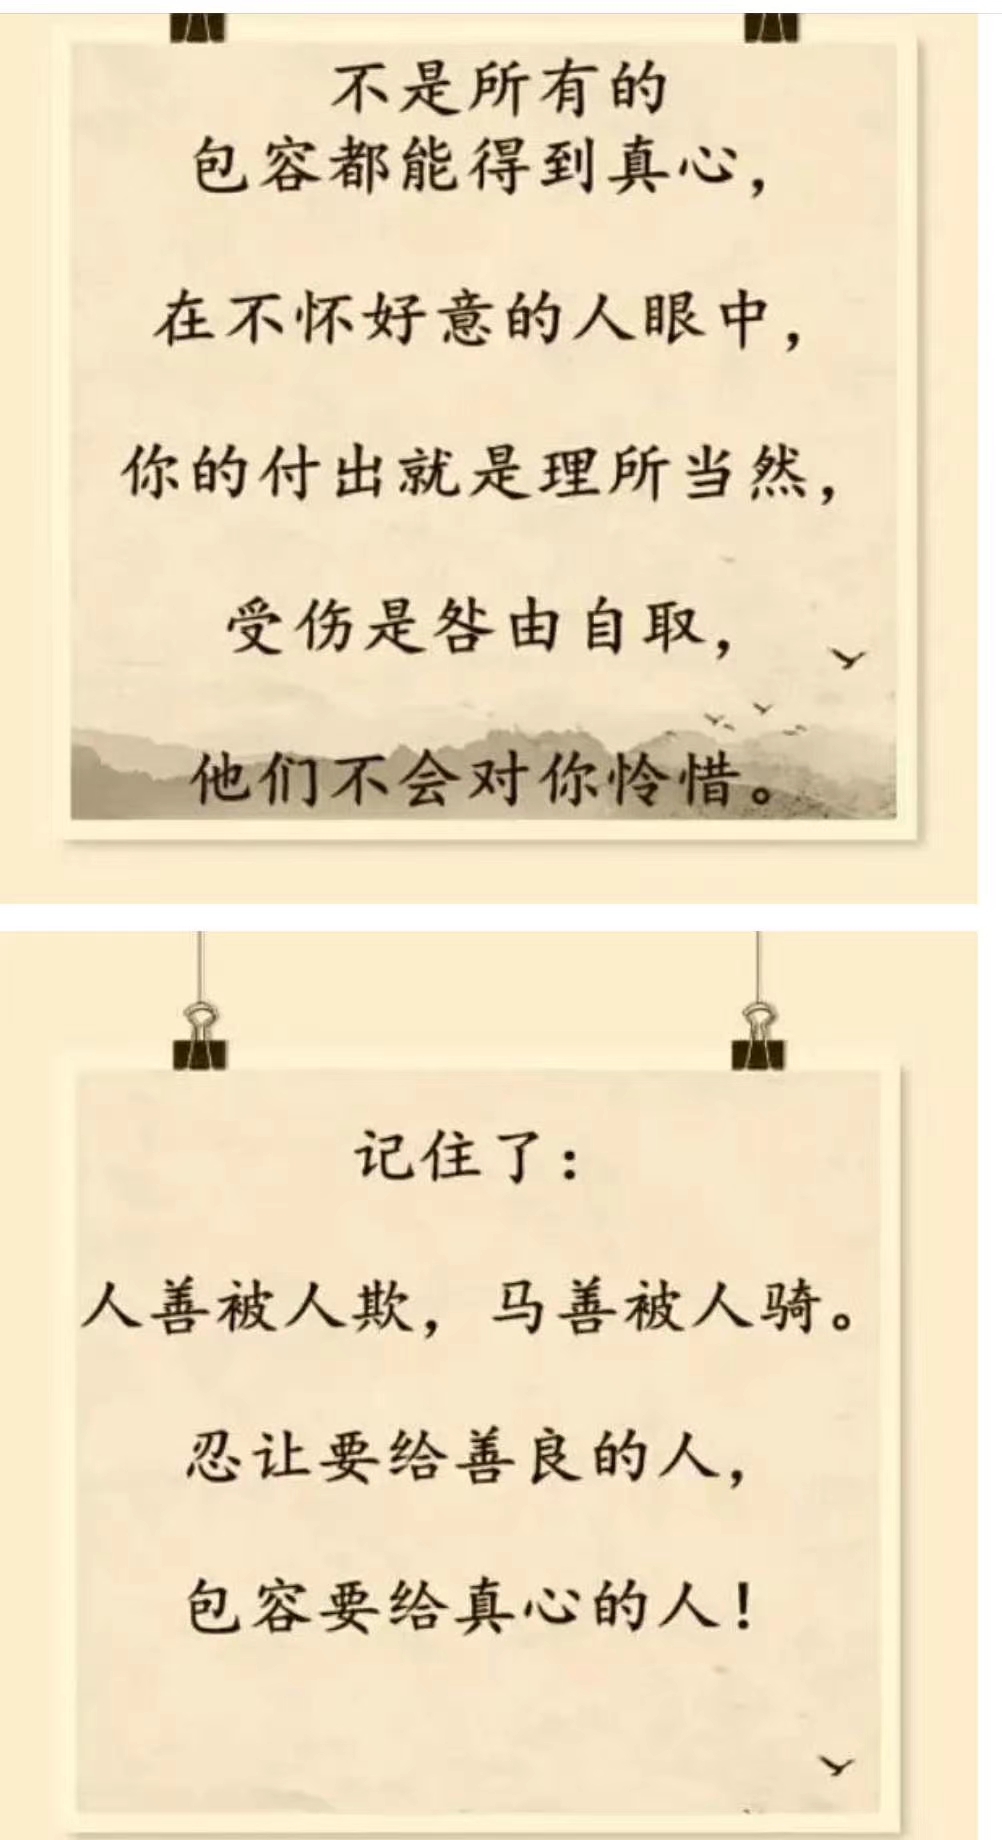 不是所有的
包容都能得到真心，
在不怀好意的人眼中，
你的付出就是理所当然，
受伤是咎由自取，
他们不会对你怜惜。
记住了：
人善被人欺，马善被人骑。
忍让要给善良的人，
包容要给真心的人！